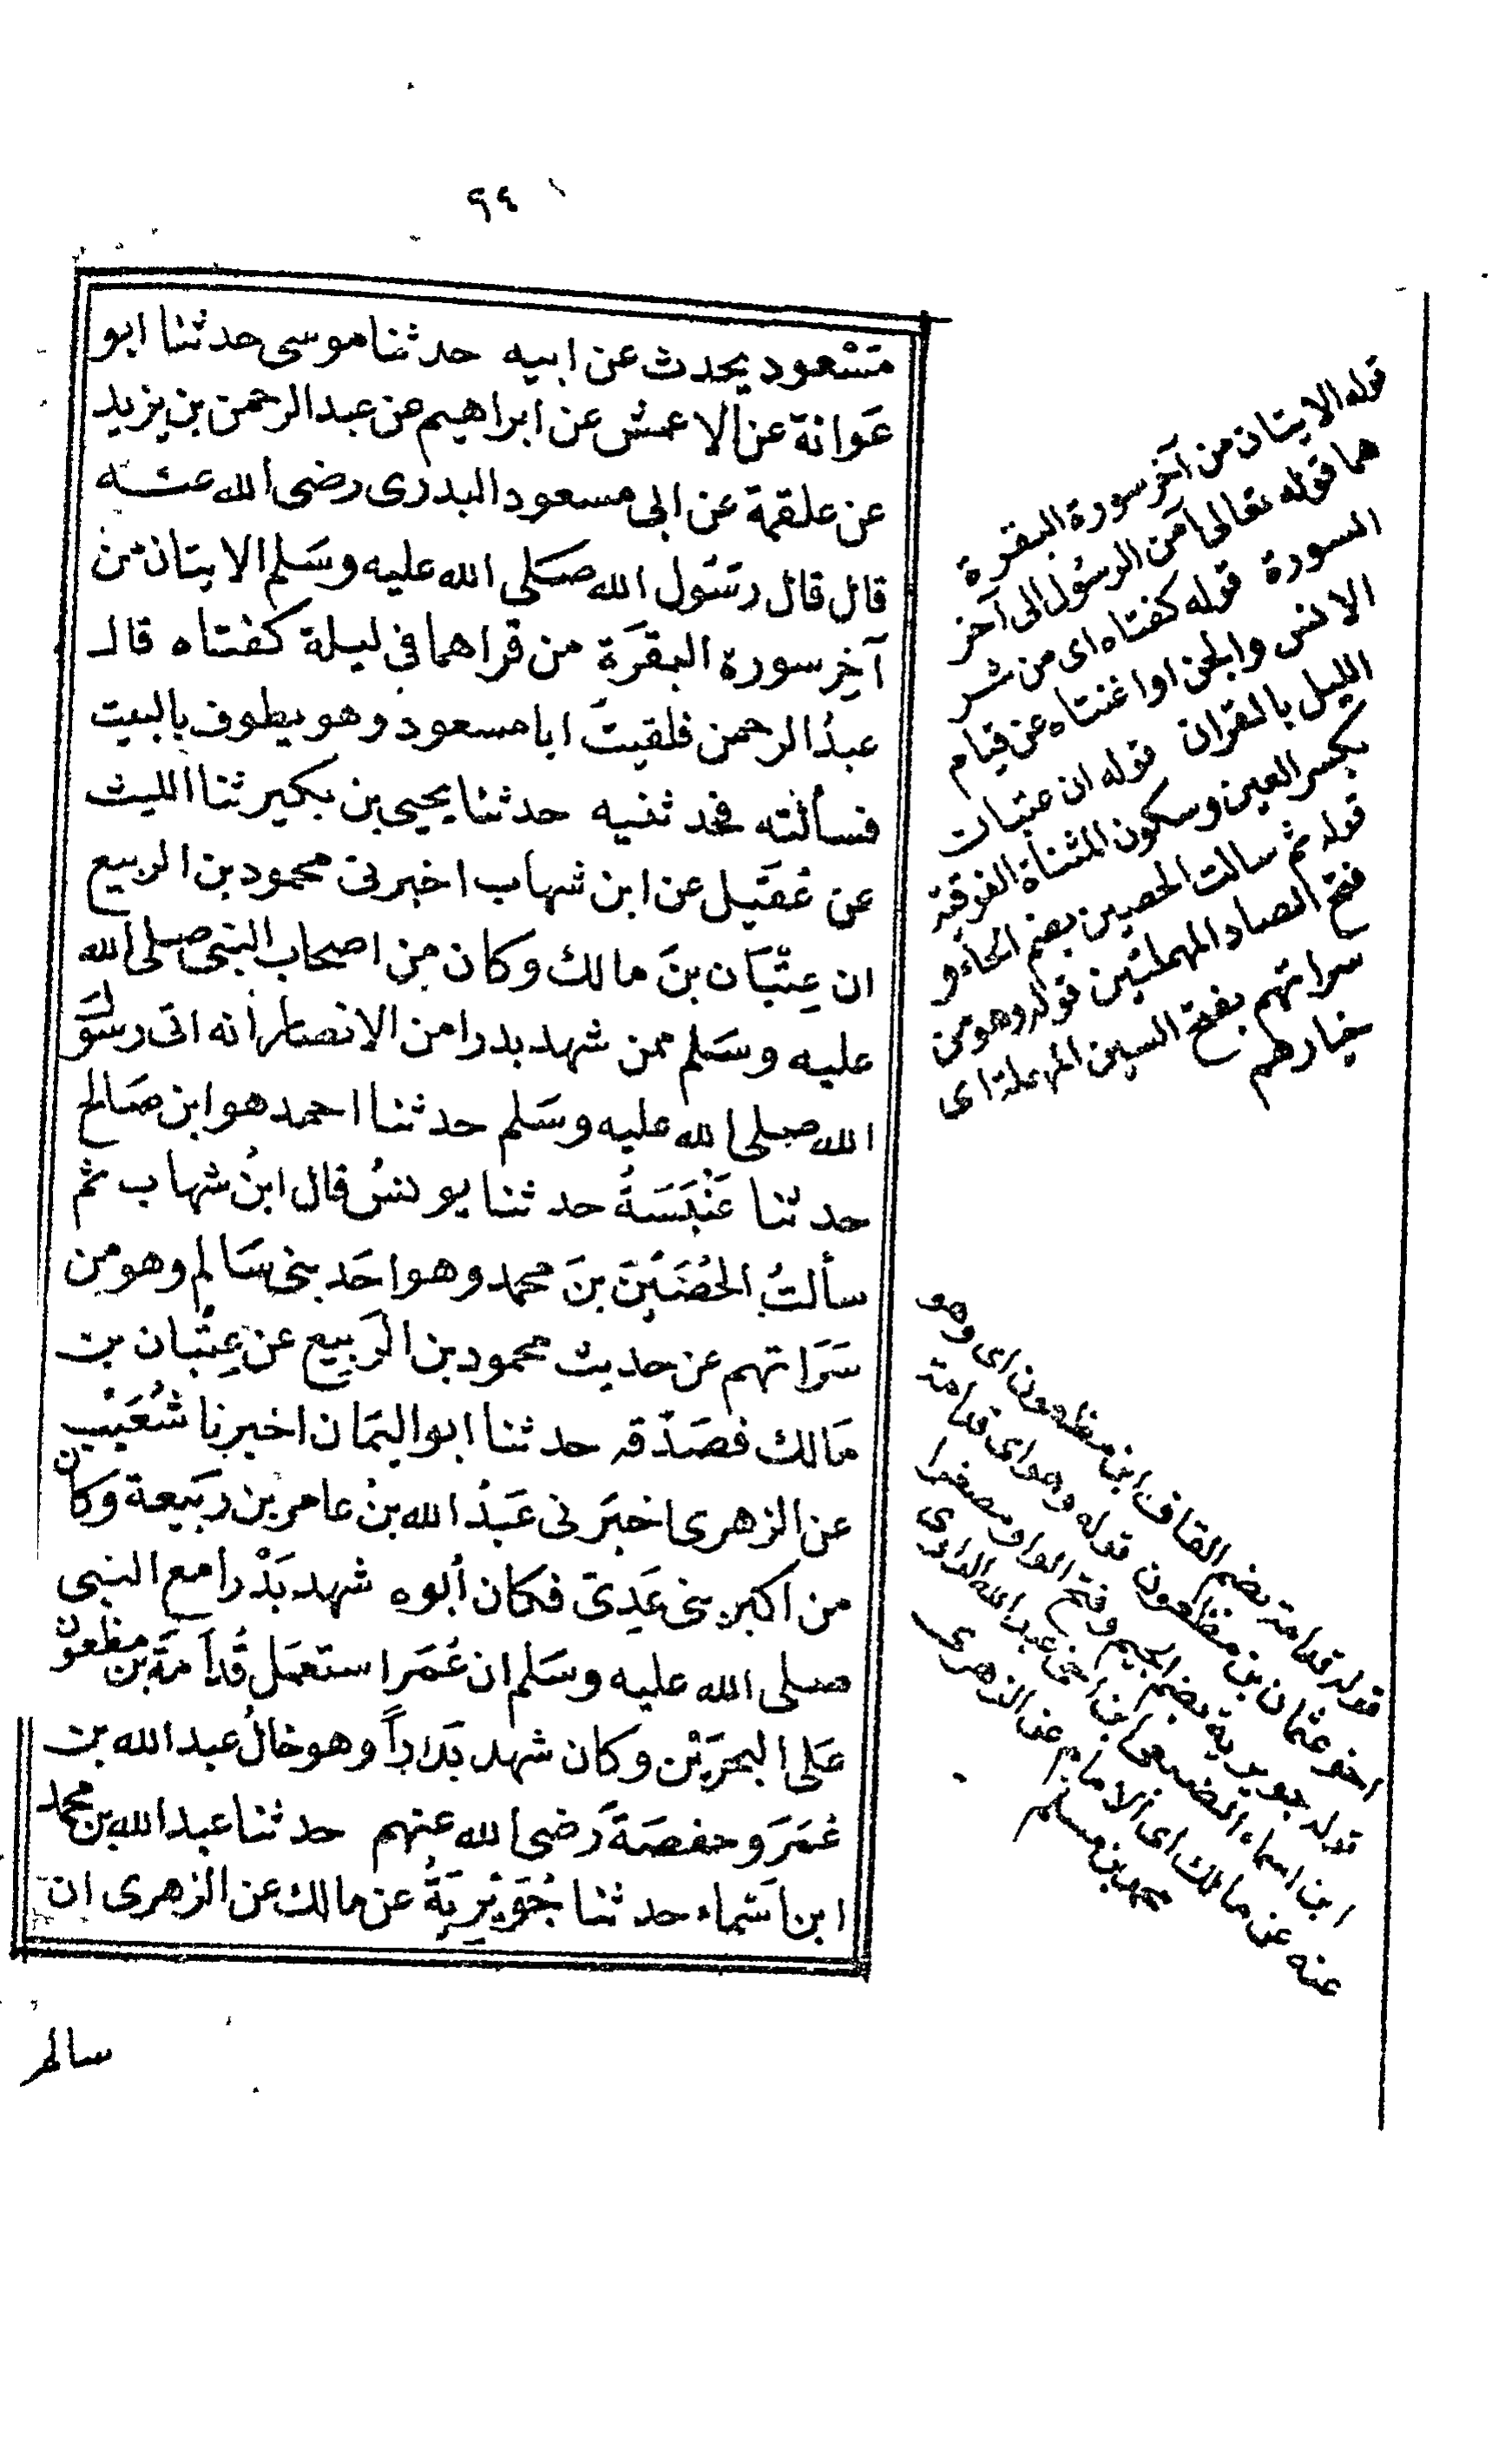 ٩٤
مَسْعود يحدث عن ابيه حدثنا موسى حدثنا ابو
عَوانة عن الاعمش عن ابراهيم عن عبد الرحمن بن يزيد
عن علقمة عن ابى مسعود البدرى رضى الله عنه
قال قال رسَول الله صَلى الله عليه وسَلم الايتان من
آخِر سورة البقَرَة من قراهما فى ليلة كفتاه قال
عبدُ الرحمن فلقيتُ ابا مسعود وهو يطوف بالبيت
فسألته فحدثنيه حدثنا يحيى بن بكير ثنا الليث
عن عُقَيل عن ابن شهاب اخبرنى محمود بن الربيع
ان عِتْبَان بنَ مالك وكان مِن اصحاب النبى صلى الله
عليه وسَلم ممن شهد بدرا من الانصار أنه اتى رسَول
الله صلى الله عليه وسَلم حدثنا احمد هو ابن صَالح
حدثنا عَنْبَسَةُ حدثنا يونسُ قال ابنُ شهاب ثم
سألتُ الحُصَيْنَ بنَ محمد وهو احَد بنى سَالم وهو مِن
سَرَاتهم عن حديث محمود بن الرَبِيع عن عِتْبان بن
مَالك فصَدّقه حدثنا ابو اليَمان اخبرنا شُعَيْب
عن الزهرى اخبَرنى عَبْدُ الله بنُ عامر بن رَبيعة وكان
من اكبر بنى عَدِىّ فكان أبوه شهد بَدْرا مع النبى
صلى الله عليه وسَلم ان عُمَر استعمَل قُدَامَةَ بن مظعون
عَلى البحرَيْن وكان شهد بَدراً وهو خالُ عبد الله بن
عُمَرَ وحفصَةَ رَضى الله عنهم حدثنا عبد الله بن محمد
ابن اَسْماء حدثنا جُوَيْرِيَةُ عن مالك عن الزهرى ان
سالم
قوله الايتان من آخر سورة البقرة
هما قوله تعالى آمن الرسول الى آخر
السورة قوله كفتاه اى من شر
الانس والجن او اغنتاه عن قيام
الليل بالقران قوله ان عتبان
بكسر العين وسكون المثناة الفوقية
قوله ثم سالت الحصين بضم الحاء و
فتح الصاد المهملتين قوله وهو من
سراتهم بفتح السين المهملة اى
خيارهم
قوله قدامة بضم القاف ابن مظعون اى وهو
اخو عثمان بن مظعون قوله وهو اى قدامة
قوله جويرية بضم الجيم وفتح الواو مصغرا
ابن اسماء الضبعى ابن اخى عبد الله الراوى
عنه عن مالك اى الامام عن الزهرى
محمد بن مسلم